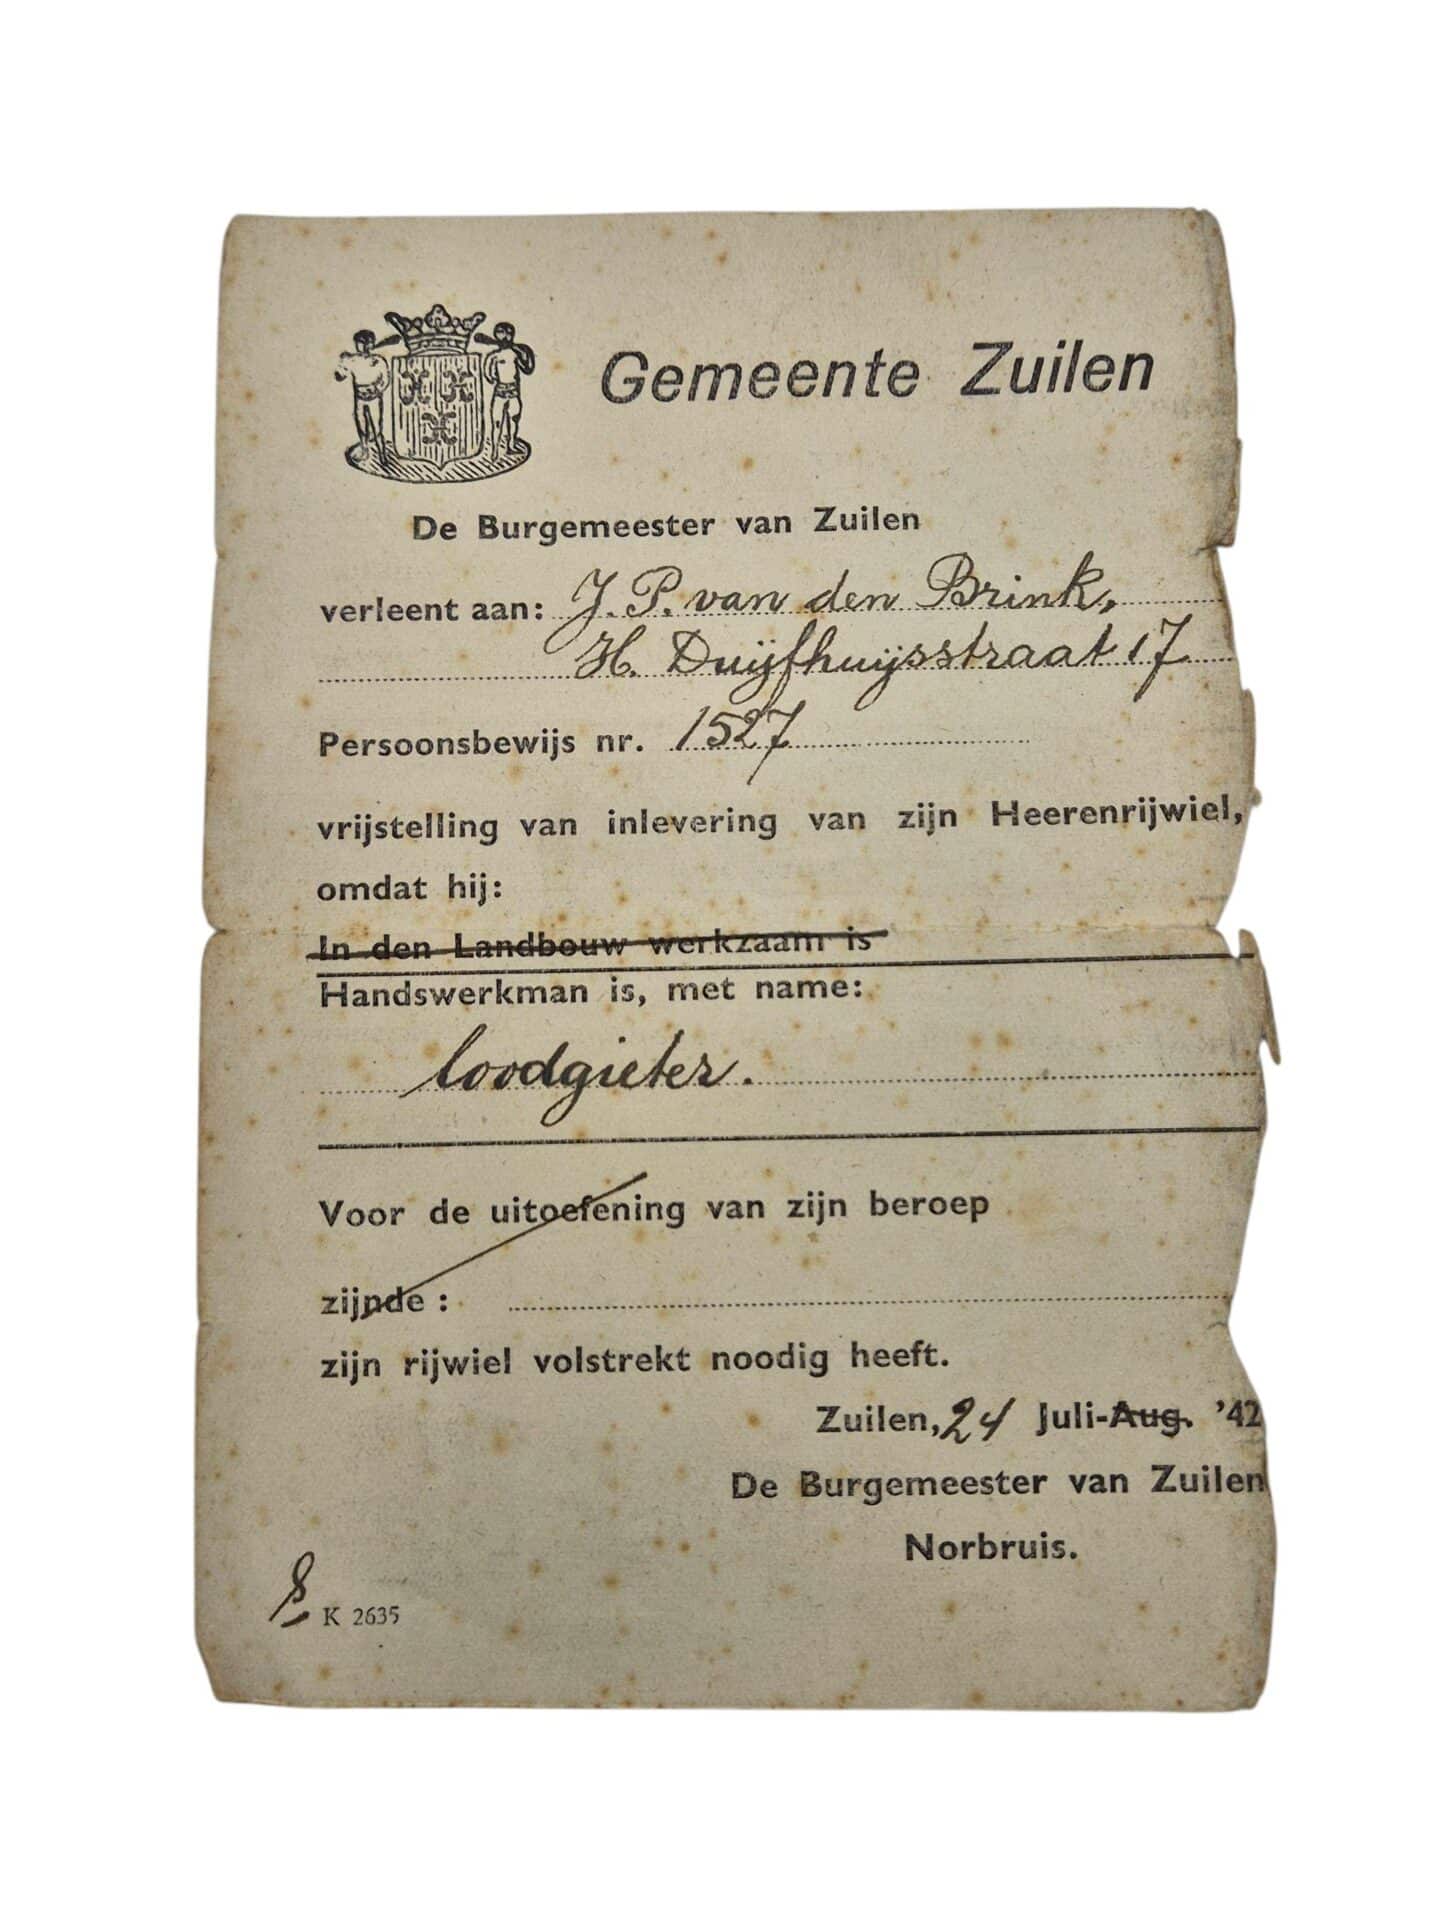 Gemeente Zuilen
De Burgemeester van Zuilen
verleent aan: J. P. van den Brink,
H. Duijfhuijsstraat 17
Persoonsbewijs nr. 1527
vrijstelling van inlevering van zijn Heerenrijwiel,
omdat hij:
In den Landbouw werkzaam is
Handswerkman is, met name:
loodgieter.
Voor de uitoefening van zijn beroep
zijnde :
zijn rijwiel volstrekt noodig heeft.
Zuilen, 24 Juli-Aug. '42
De Burgemeester van Zuilen
Norbruis.
K 2635